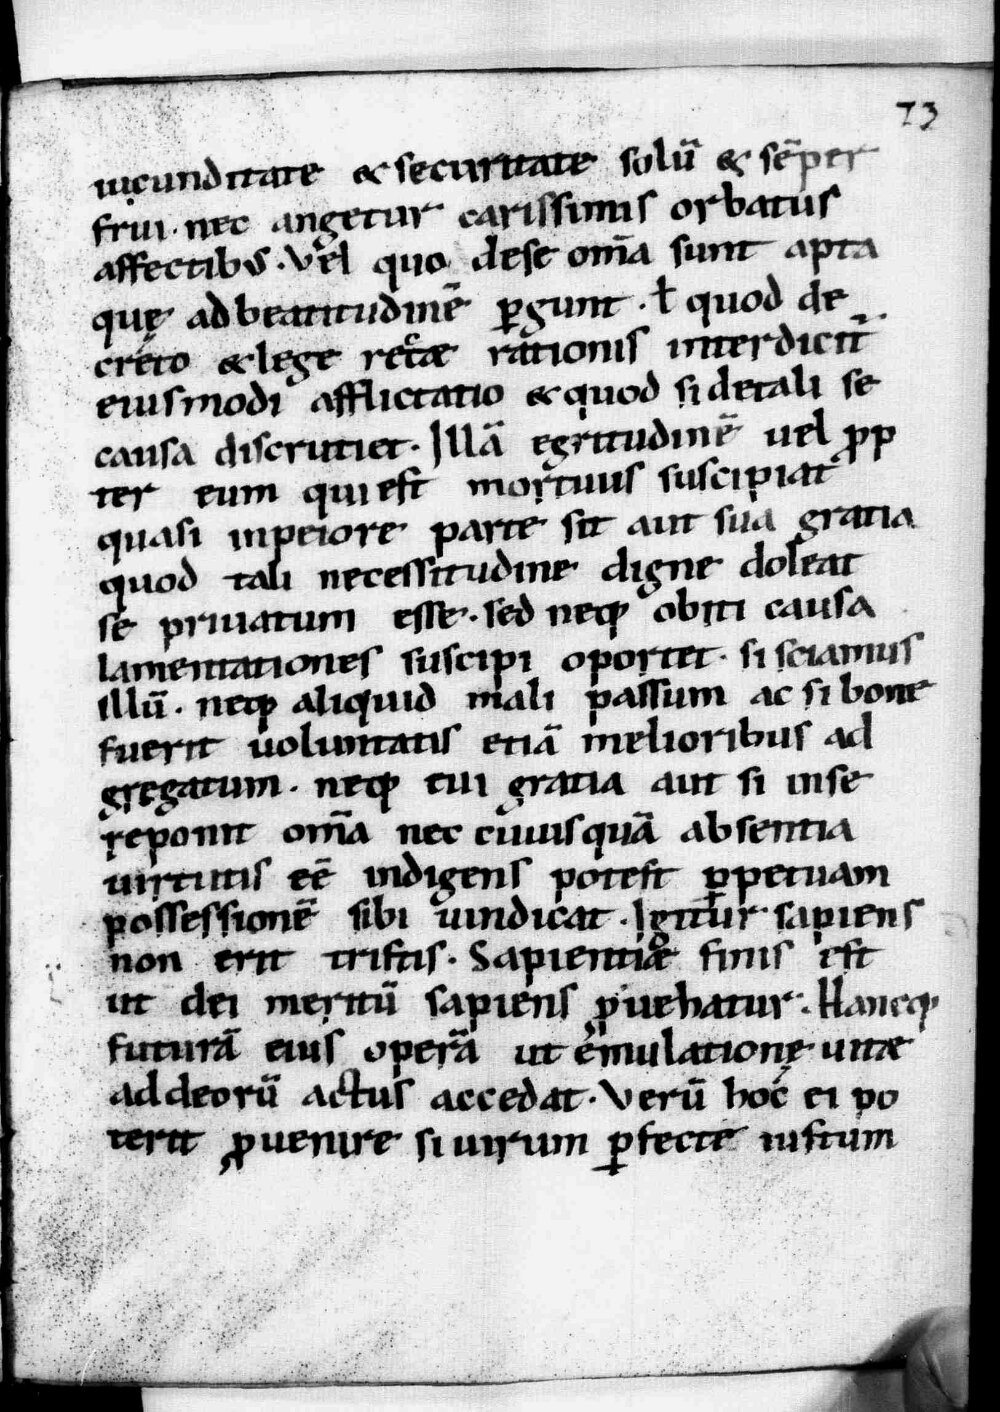 73
iucunditate & securitate solū & sēper
frui. nec angetur carissimis orbatus
affectibus. Vel quo dese om̄a sunt apta
quę adbeatitudinē ꝑgunt. ł quod de
creto & lege rectæ rationis interdicit᷑
eiusmodi afflictatio & quod si detali se
causa discrutiet. Illā egritudinē uel ꝓp
ter eum qui est mortuus suscipiat
quasi inpeiore parte sit aut sua gratia
quod tali necessitudine digne doleat
se priuatum esse. sed neqꝫ obiti causa
lamentationes suscipi oportet. si sciamus
illū. neqꝫ aliquid mali passum ac si bone
fuerit uoluntatis etiā melioribus ad
gregatum. neqꝫ tui gratia aut si inse
reponit om̄a nec cuiusquā absentia
uirtutis eē indigens potest ꝑpetuam
possessionē sibi uindicat. Igitur sapiens
non erit tristis. Sapientiæ finis est
ut dei meritū sapiens ꝓuehatur. Hancqꝫ
futurā eius operā ut ęmulationę uitæ
addeorū actus accedat. Verū hoc ei po
terit ꝓuenire si uirum ꝑfecte iustum